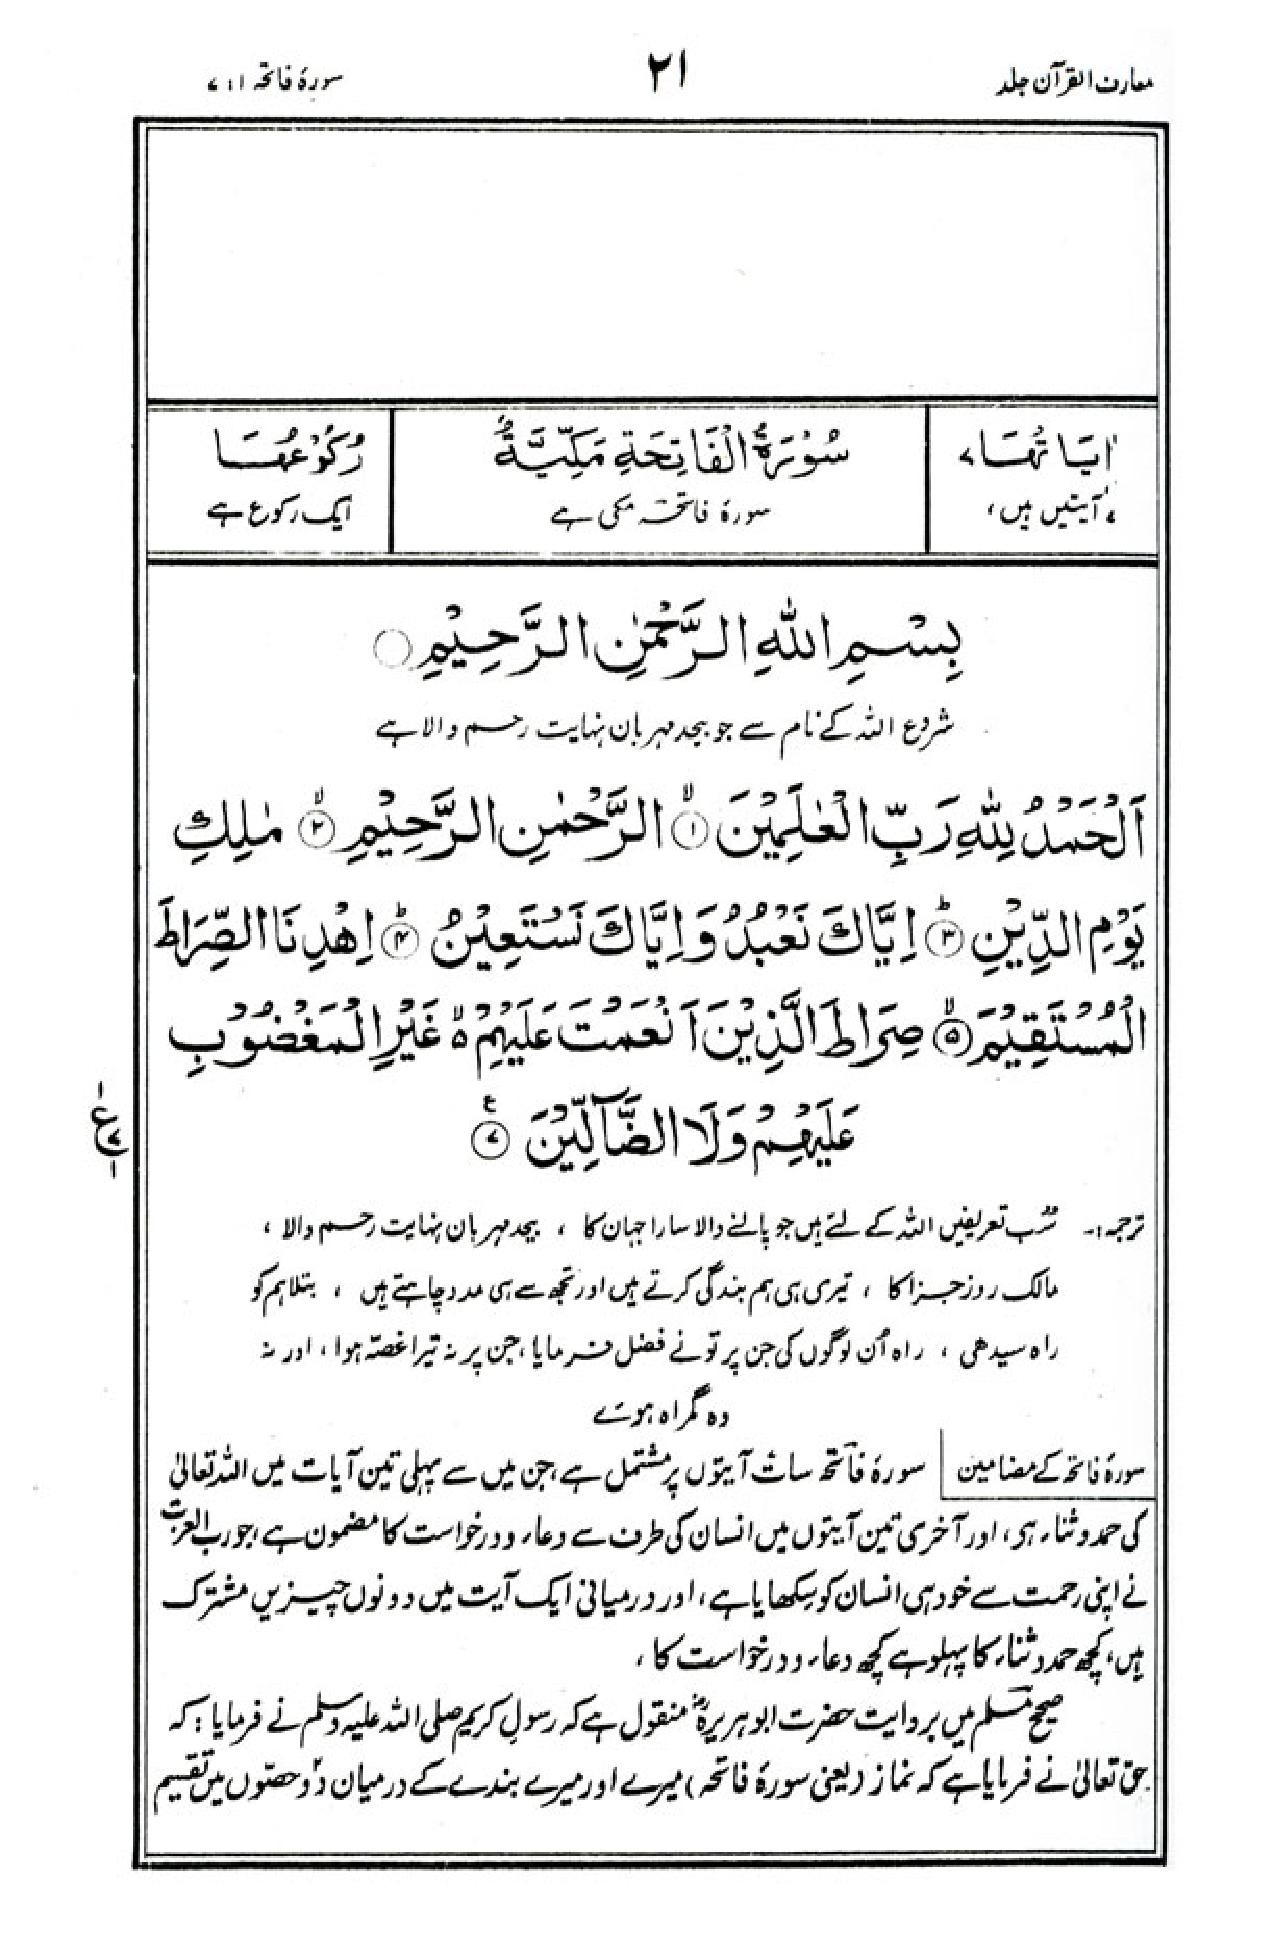 معارف القرآن جلد
۲۱
سورۂ فاتحہ ۱ : ۷
اٰیَاتُهَا ۷
سُوْرَةُ الْفَاتِحَةِ مَكِّيَّةٌ
رُكُوْعُهَا
۷ آیتیں ہیں،
سورۂ فاتحہ مکی ہے
ایک رکوع ہے
بِسْمِ اللّٰهِ الرَّحْمٰنِ الرَّحِيْمِ
شروع اللہ کے نام سے جو بیحد مہربان نہایت رحم والا ہے
اَلْحَمْدُ لِلّٰهِ رَبِّ الْعٰلَمِيْنَ ۙ﴿۱﴾ الرَّحْمٰنِ الرَّحِيْمِ ۙ﴿۲﴾ مٰلِكِ
يَوْمِ الدِّيْنِ ؕ﴿۳﴾ اِيَّاكَ نَعْبُدُ وَ اِيَّاكَ نَسْتَعِيْنُ ؕ﴿۴﴾ اِهْدِنَا الصِّرَاطَ
الْمُسْتَقِيْمَ ۙ﴿۵﴾ صِرَاطَ الَّذِيْنَ اَنْعَمْتَ عَلَيْهِمْ ۙ۬ غَيْرِ الْمَغْضُوْبِ
عَلَيْهِمْ وَلَا الضَّآلِّيْنَ ﴿۷﴾
ع
ترجمہ:۔ سب تعریفیں اللہ کے لئے ہیں جو پالنے والا سارا جہان کا ، بیحد مہربان نہایت رحم والا ،
مالک روز جزا کا ، تیری ہی ہم بندگی کرتے ہیں اور تجھ سے ہی مدد چاہتے ہیں ، بتلا ہم کو
راہ سیدھی ، راہ اُن لوگوں کی جن پر تو نے فضل فرمایا، جن پر نہ تیرا غصّہ ہوا ، اور نہ
وہ گمراہ ہوئے
سورۂ فاتحہ کے مضامین
سورۂ فاتحہ سات آیتوں پر مشتمل ہے، جن میں سے پہلی تین آیات میں اللہ تعالیٰ
کی حمد و ثناء ہی، اور آخری تین آیتوں میں انسان کی طرف سے دعاء و درخواست کا مضمون ہے، جو رب العزت
نے اپنی رحمت سے خود ہی انسان کو سکھایا ہے، اور درمیانی ایک آیت میں دونوں چیزیں مشترک
ہیں، کچھ حمد و ثناء کا پہلو ہے کچھ دعاء و درخواست کا ،
صحیح مسلم میں بروایت حضرت ابوہریرہؓ منقول ہے کہ رسول کریم صلی اللہ علیہ وسلم نے فرمایا : کہ
حق تعالیٰ نے فرمایا ہے کہ نماز (یعنی سورۂ فاتحہ) میرے اور میرے بندے کے درمیان دو حصّوں میں تقسیم